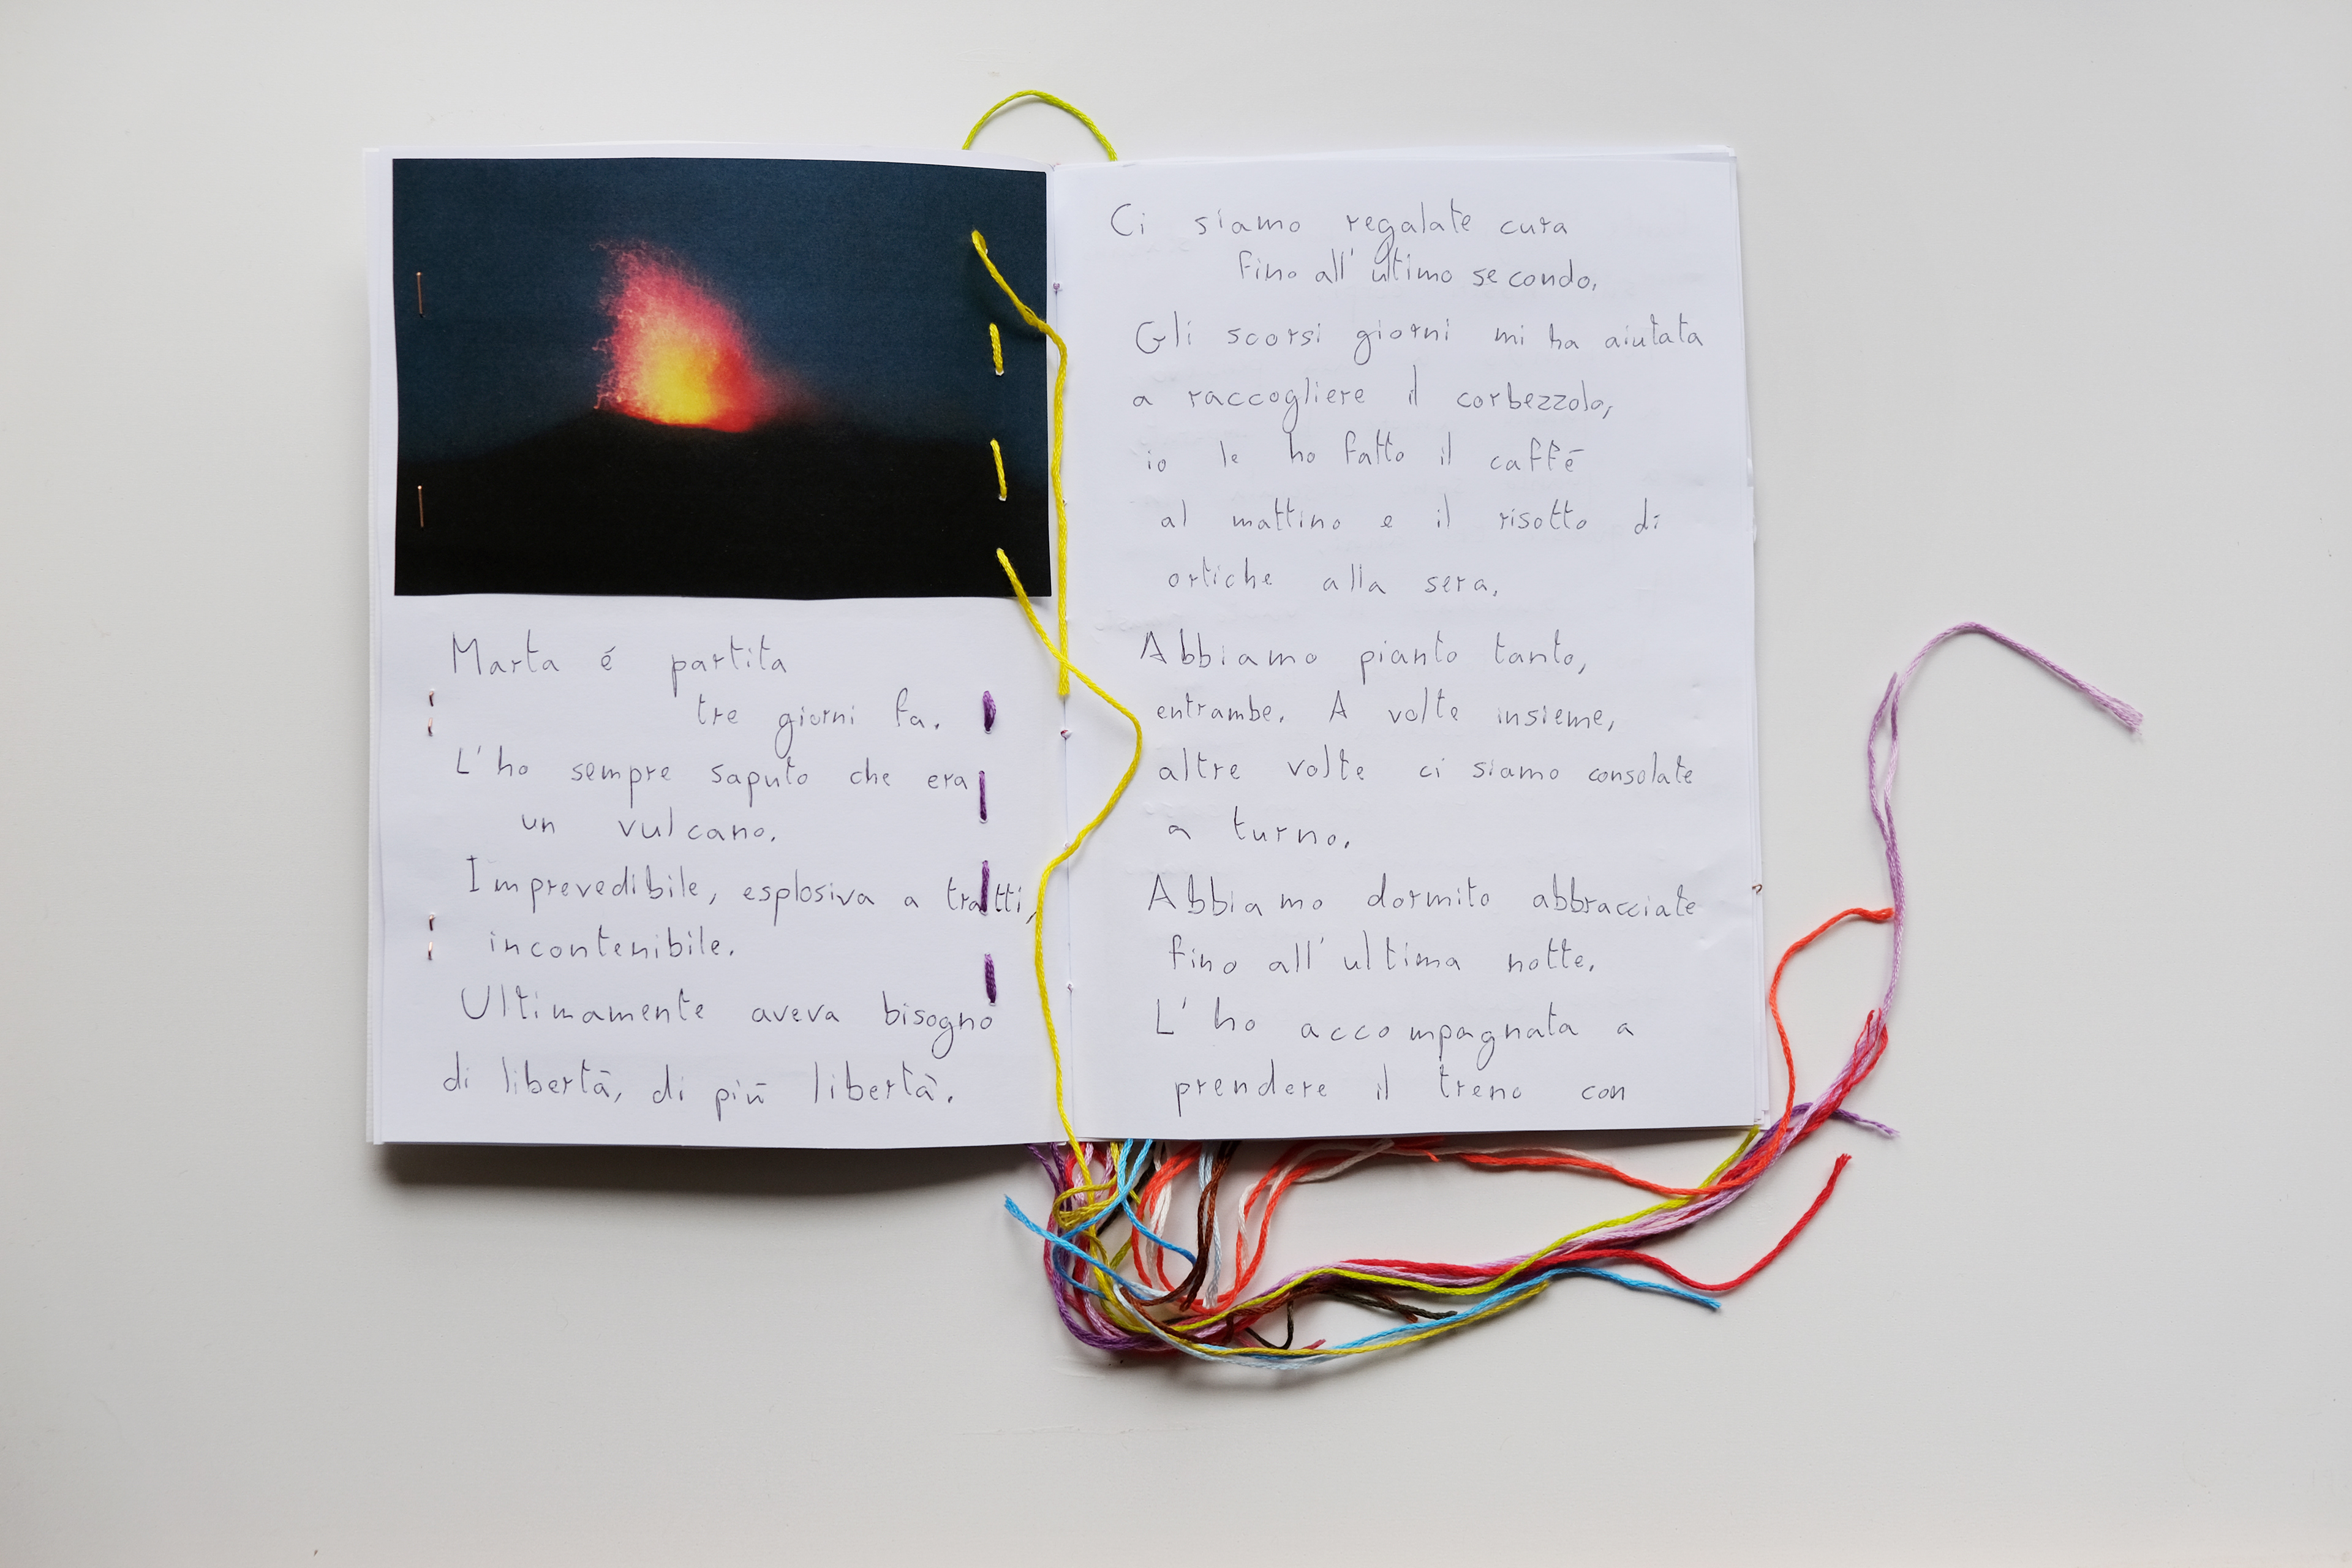 Marta é partita
tre giorni fa.
L'ho sempre saputo che era
un vulcano.
Imprevedibile, esplosiva a tratti,
incontenibile.
Ultimamente aveva bisogno
di libertà, di più libertà.
Ci siamo regalate cura
fino all'ultimo secondo.
Gli scorsi giorni mi ha aiutata
a raccogliere il corbezzolo,
io le ho fatto il caffé
al mattino e il risotto di
ortiche alla sera.
Abbiamo pianto tanto,
entrambe. A volte insieme,
altre volte ci siamo consolate
a turno.
Abbiamo dormito abbracciate
fino all'ultima notte.
L'ho accompagnata a
prendere il treno con